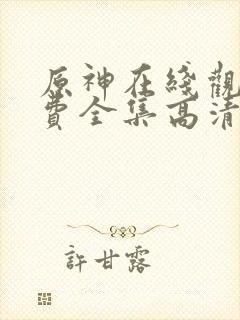 原神在綫觀
費全集高清
許甘露